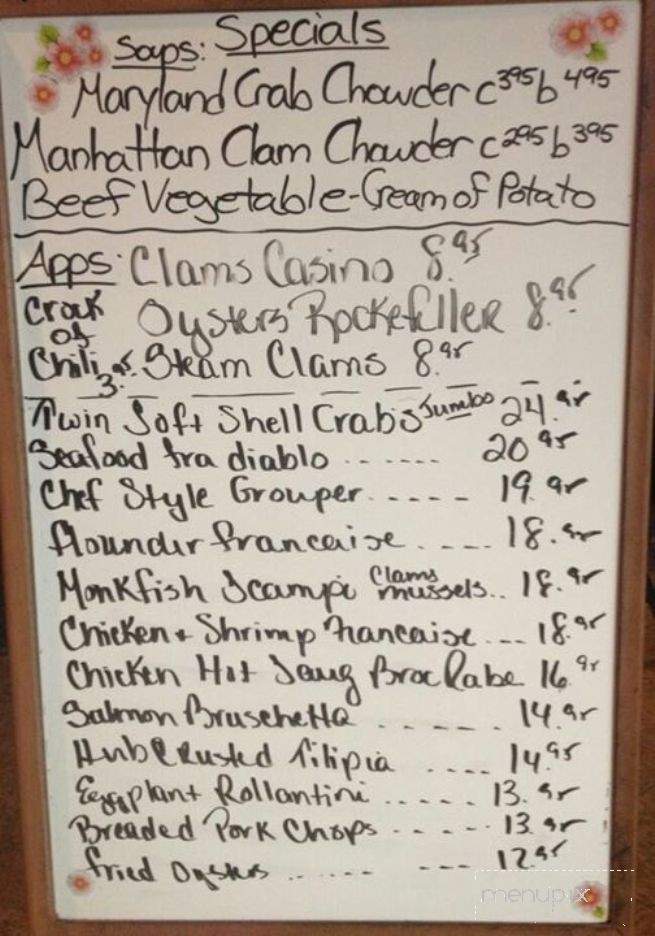 Soups: Specials
Maryland Crab Chowder c 395 b 495
Manhattan Clam Chowder c 295 b 395
Beef Vegetable - Cream of Potato
Apps: Clams Casino 8.95
Crock of Chili 3.95
Oysters Rockefeller 8.95
Steam Clams 8.95
Twin Soft Shell Crabs Jumbo 24.95
Seafood fra diablo ....... 20 95
Chef Style Grouper ----- 19.95
flounder francaise .---. 18.95
Monkfish Scampi Clams mussels.. 18.95
Chicken + Shrimp francaise --- 18.95
Chicken Hot Saug Broc Rabe 16.95
Salmon Bruschetta ------ 14.95
Herb Crusted Tilipia .... 14.95
Eggplant Rollantini ..... 13.95
Breaded Pork Chops ----- 13.95
fried Oysters ...... --- 12.95
menupix